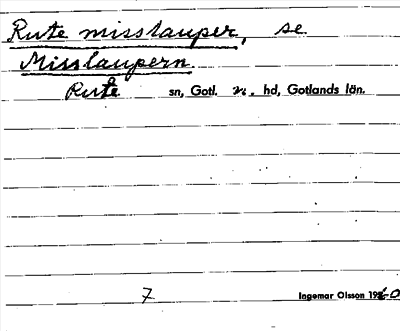 Rute misslauper, se
Misslaupern.
Rute sn, Gotl. n. hd, Gotlands län.
7
Ingemar Olsson 1960